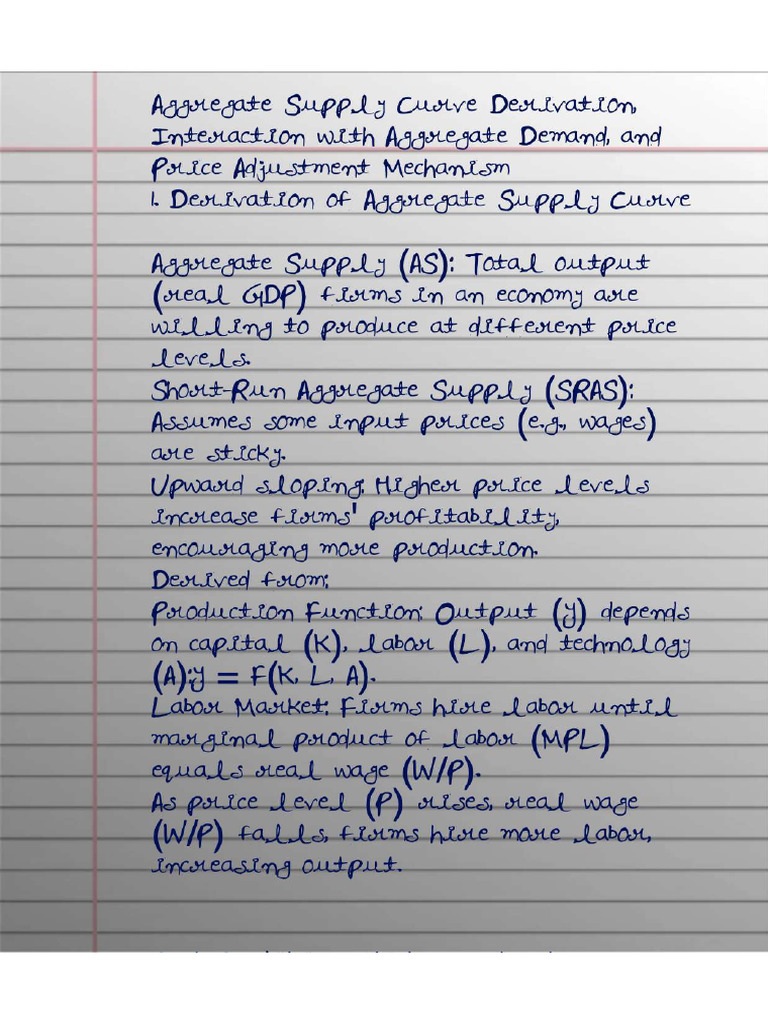 Aggregate Supply Curve Derivation,
Interaction with Aggregate Demand, and
Price Adjustment Mechanism
1. Derivation of Aggregate Supply Curve
Aggregate Supply (AS): Total output
(real GDP) firms in an economy are
willing to produce at different price
levels.
Short-Run Aggregate Supply (SRAS):
Assumes some input prices (e.g., wages)
are sticky.
Upward sloping: Higher price levels
increase firms' profitability,
encouraging more production.
Derived from:
Production Function: Output (Y) depends
on capital (K), labor (L), and technology
(A):Y = F(K, L, A).
Labor Market: Firms hire labor until
marginal product of labor (MPL)
equals real wage (W/P).
As price level (P) rises, real wage
(W/P) falls, firms hire more labor,
increasing output.